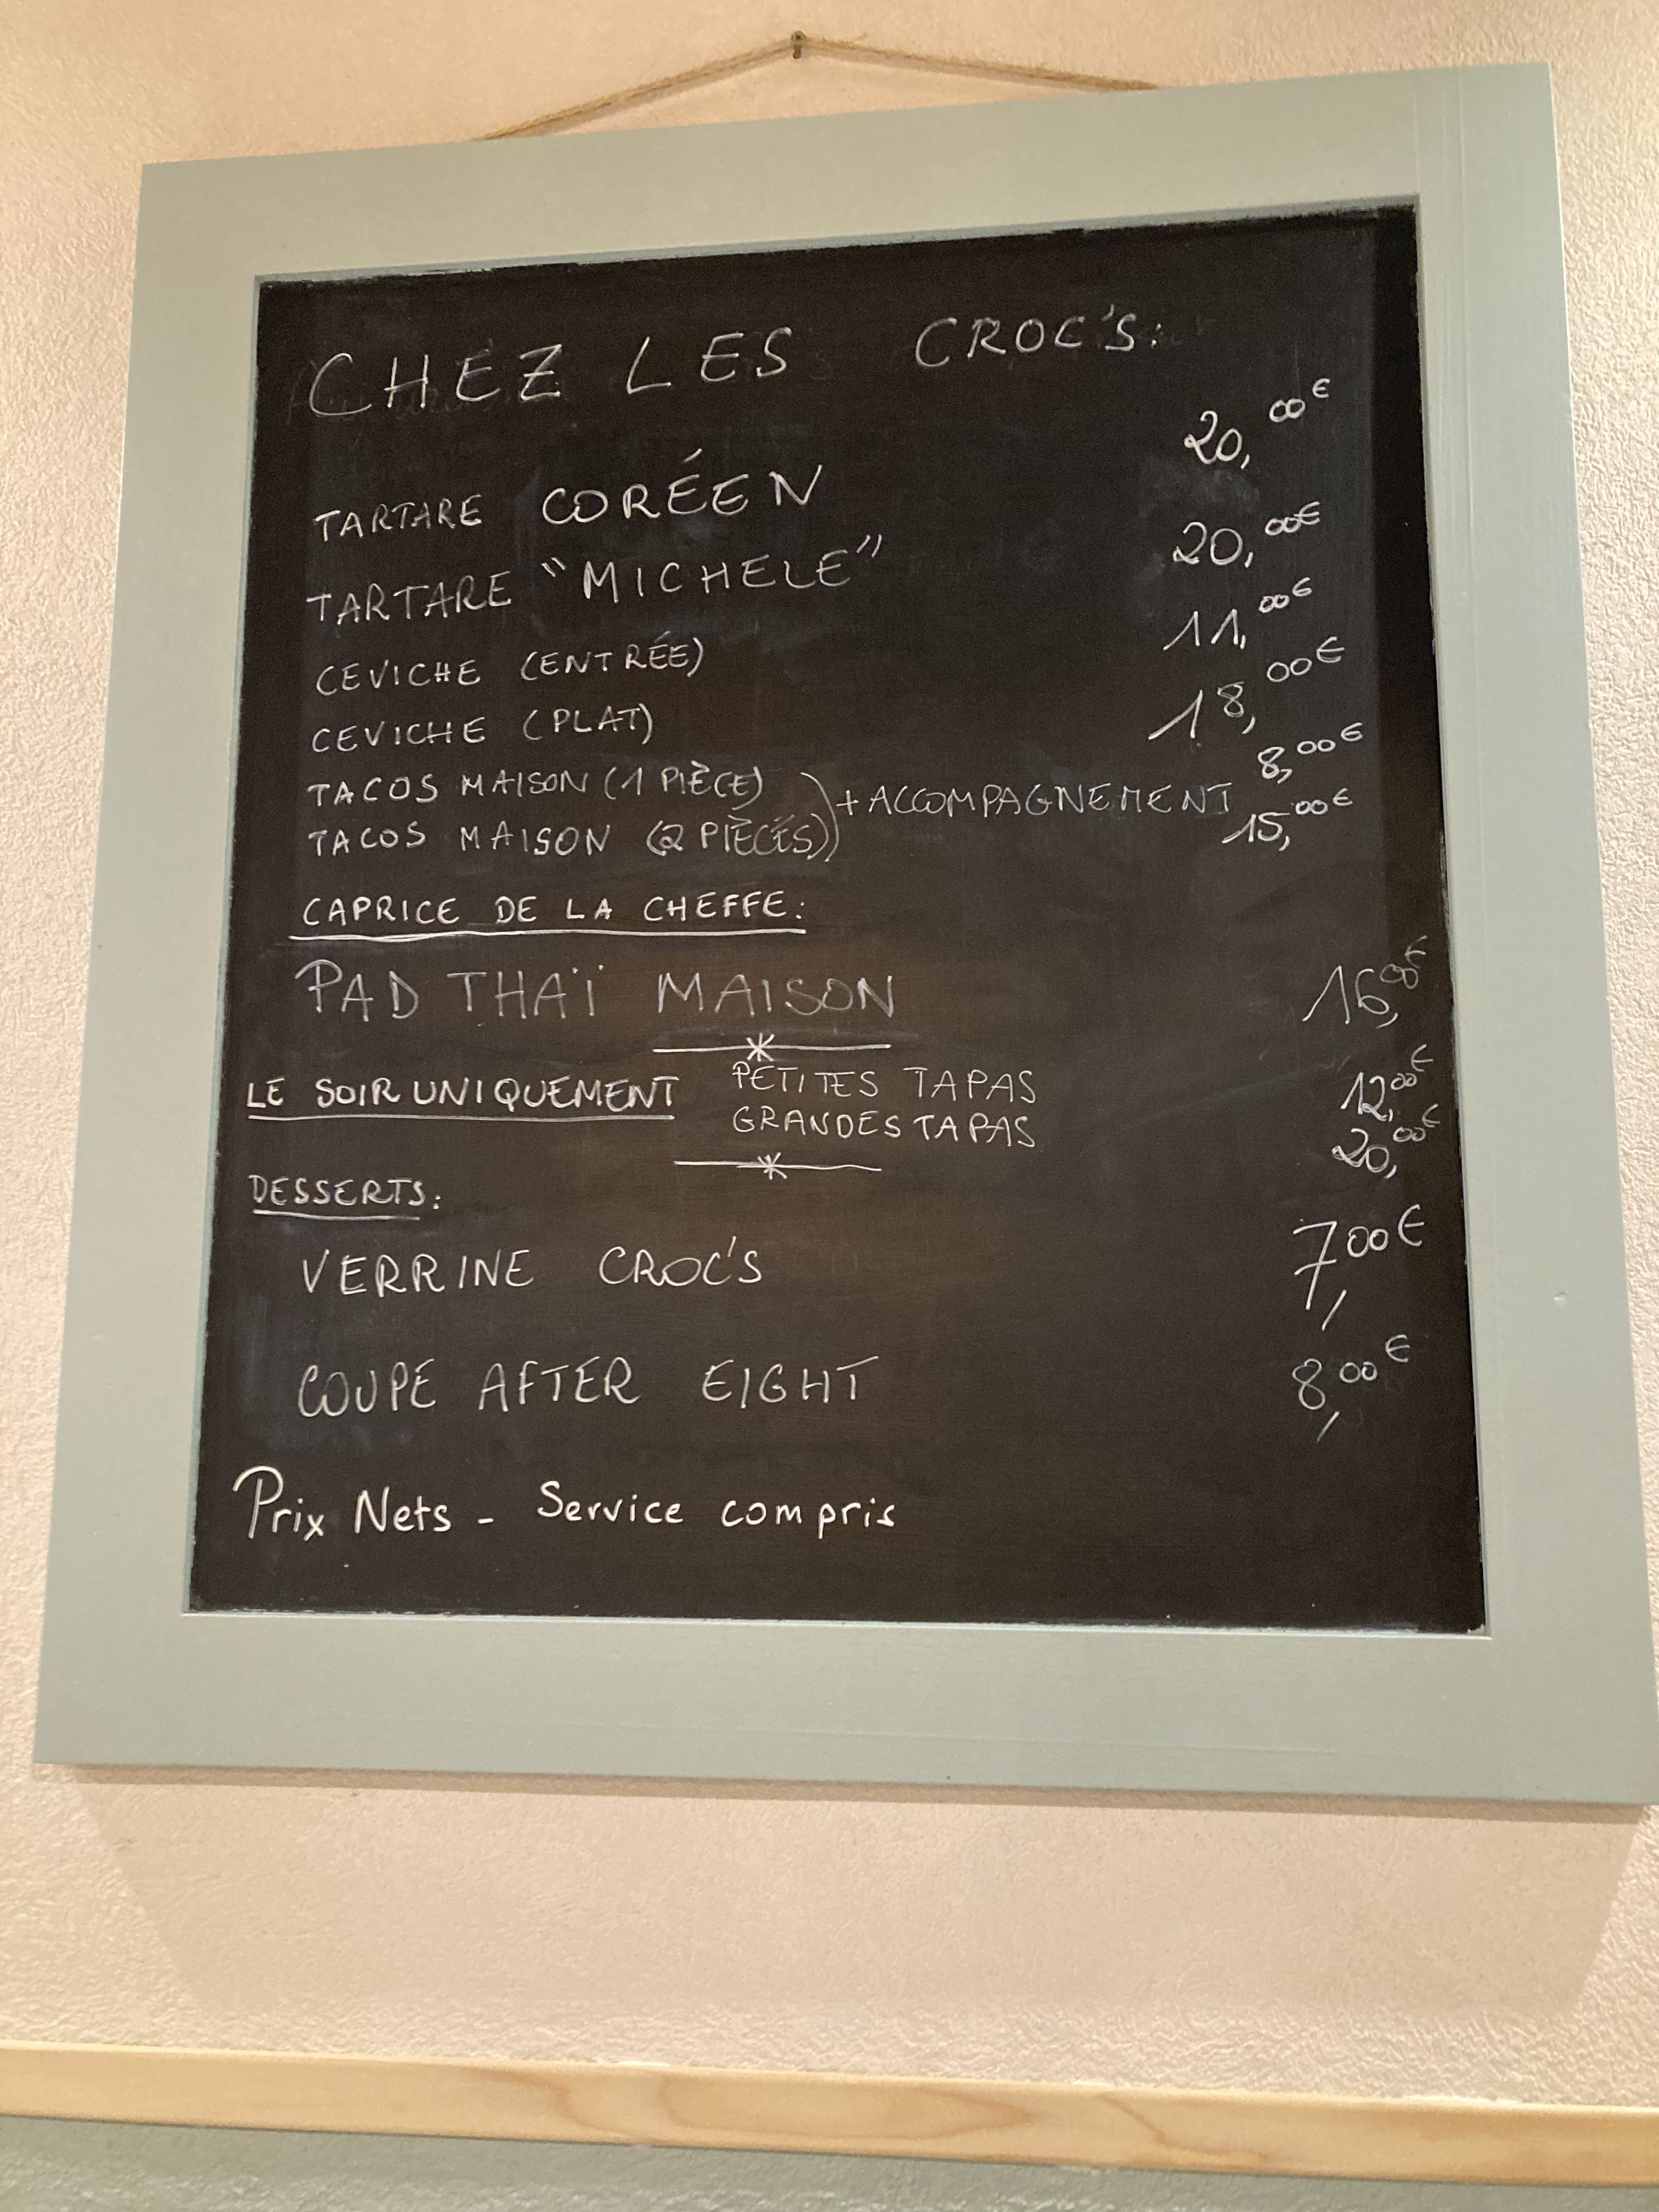 CHEZ LES CROC'S:
TARTARE CORÉEN 20,00€
TARTARE "MICHELE" 20,00€
CEVICHE (ENTRÉE) 11,00€
CEVICHE (PLAT) 18,00€
TACOS MAISON (1 PIÈCE) 8,00€
+ ACCOMPAGNEMENT
TACOS MAISON (2 PIÈCES) 15,00€
CAPRICE DE LA CHEFFE:
PAD THAÏ MAISON 16,00€
LE SOIR UNIQUEMENT PETITES TAPAS 12,00€
GRANDES TAPAS 20,00€
DESSERTS:
VERRINE CROC'S 7,00€
COUPE AFTER EIGHT 8,00€
Prix Nets - Service compris